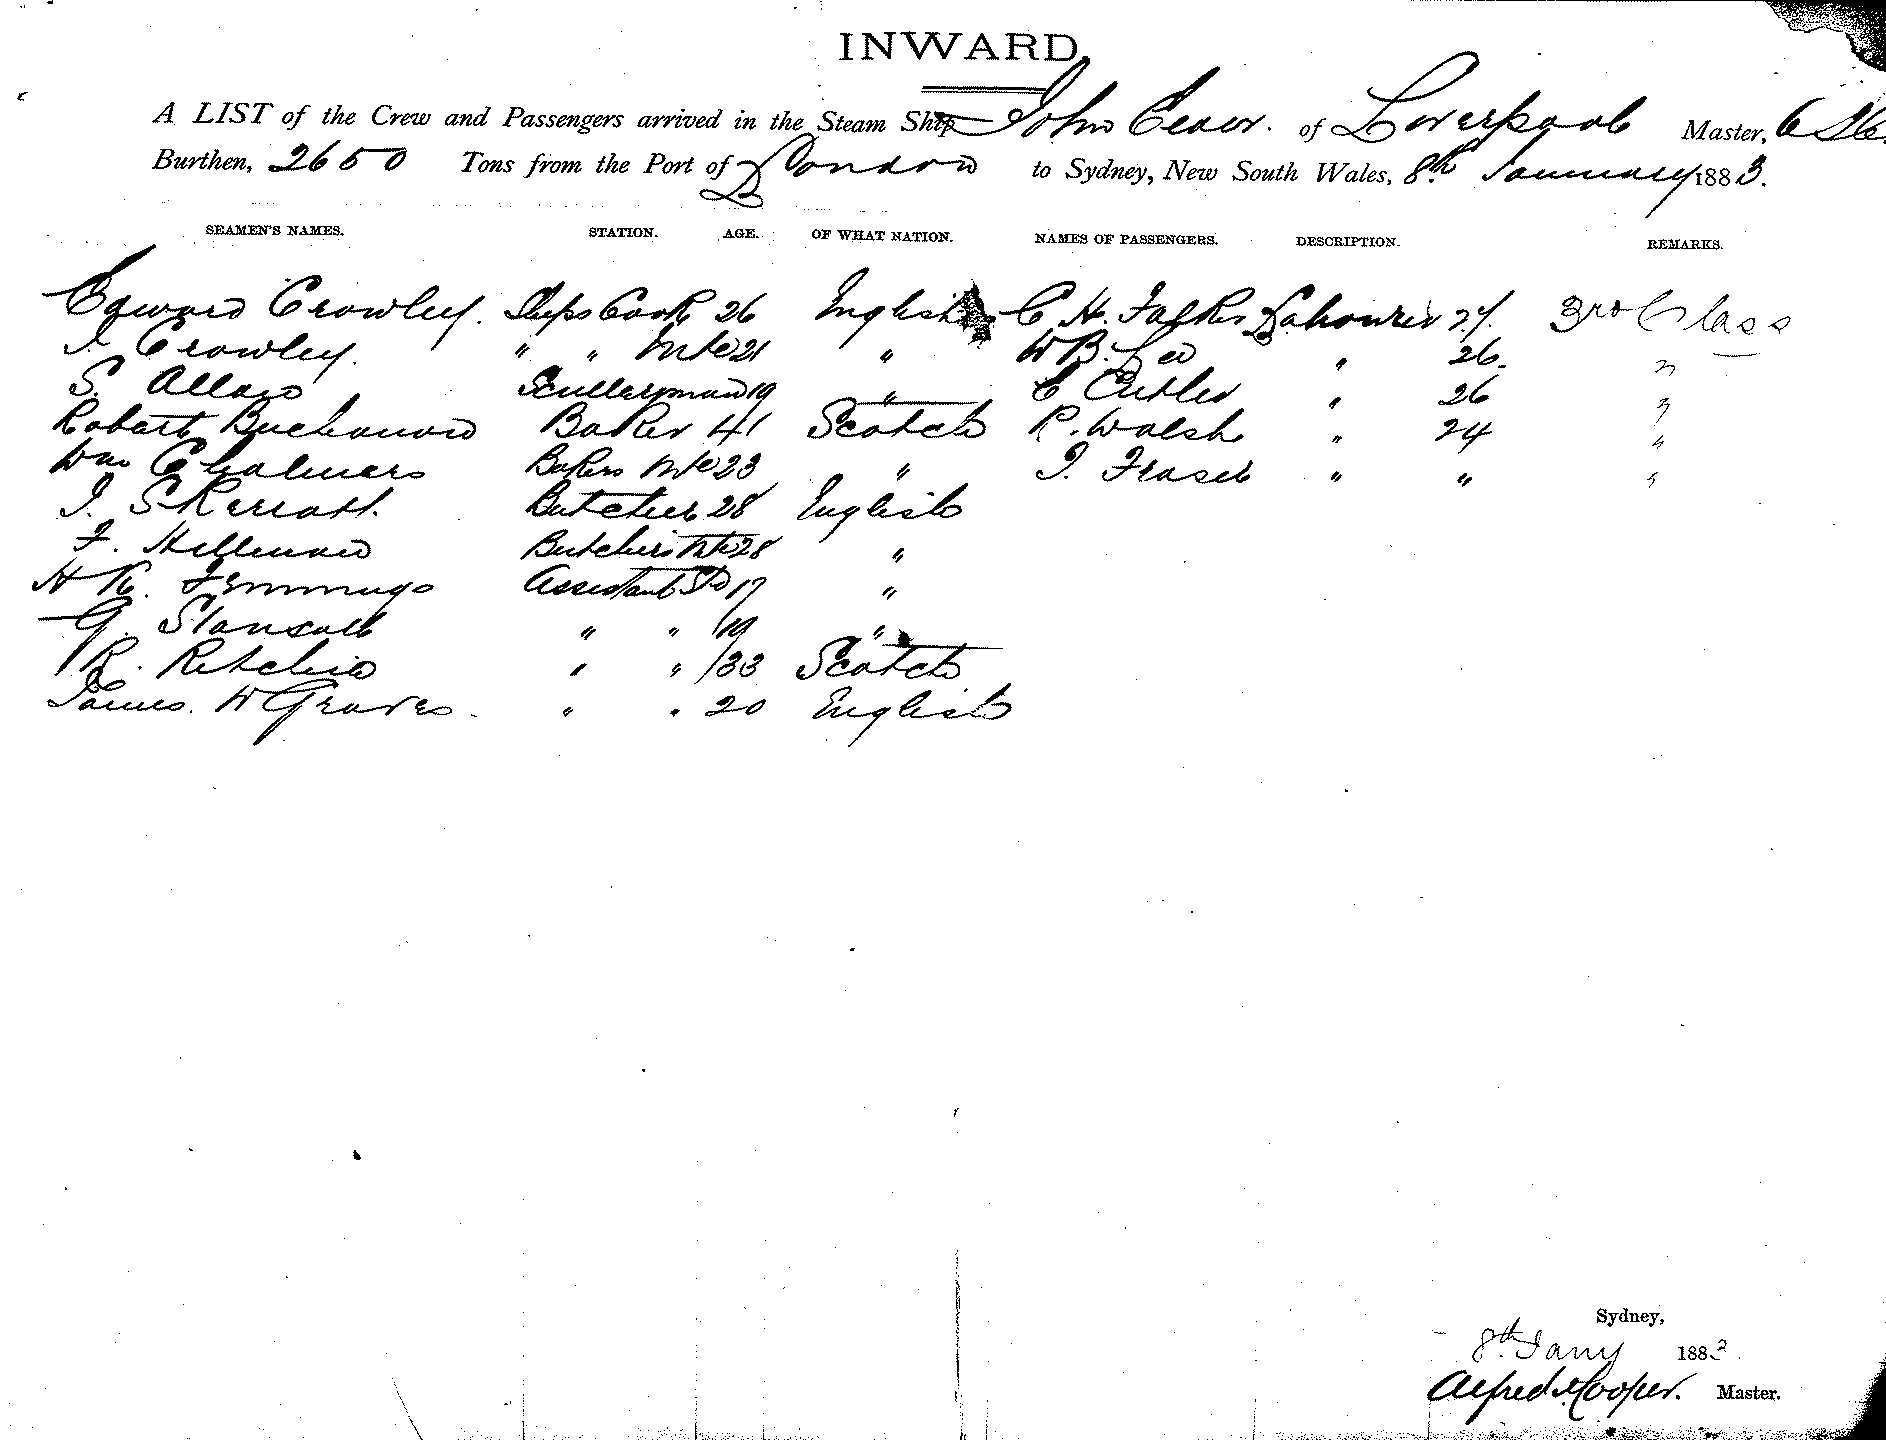 INWARD.
A LIST of the Crew and Passengers arrived in the Steam Ship John Elder. of Liverpool Master,
Burthen, 2650 Tons from the Port of London to Sydney, New South Wales, 8th January 1883.
SEAMEN'S NAMES. STATION. AGE. OF WHAT NATION. NAMES OF PASSENGERS. DESCRIPTION. REMARKS.
Edward Crowley. Ships Cook 26 English C. H. Labourer 27. 3rd Class
J. Crowley. " " Mte 21 " W B. Lee " 26. "
S. Allan Scullerman 19 " C Cutler " 26 "
Robert Buchanan Baker 41 Scotch R. Walsh " 24 "
Wm Chalmers Bakers Mte 23 " J. Fraser " " "
J. Skerratt. Butcher 28 English
F. Hillman Butchers Mte 28 "
H R. Jennings Assistant Std 17 "
G. " " 19 "
R. Ritchie " " 33 Scotch
James. W Graves. " " 20 English
Sydney,
8th Jany 1883.
Alfred J. Cooper. Master.